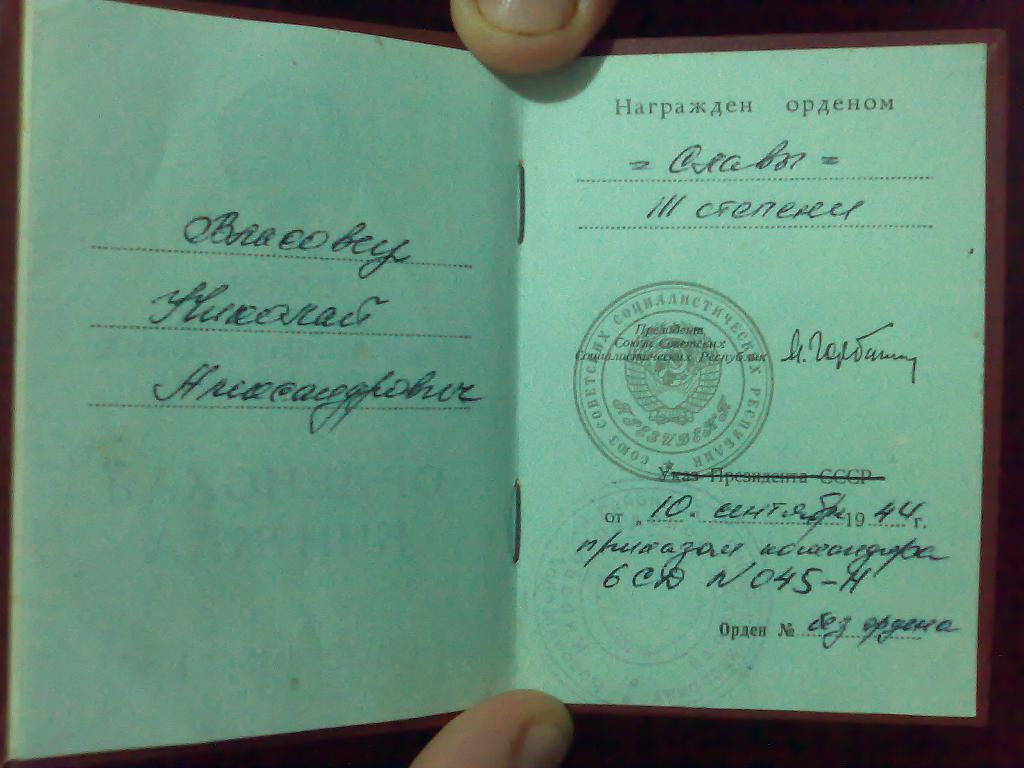 Власовец
Николай
Александрович
Награжден орденом
= Славы =
III степени
СОЮЗ СОВЕТСКИХ СОЦИАЛИСТИЧЕСКИХ РЕСПУБЛИК
ПРЕЗИДЕНТ
Президент
Союза Советских
Социалистических Республик
М. Горбачев
Указ Президента СССР
от „10" сентября 1944 г.
приказом командира
6 СД N 045-Н
Орден № без ордена